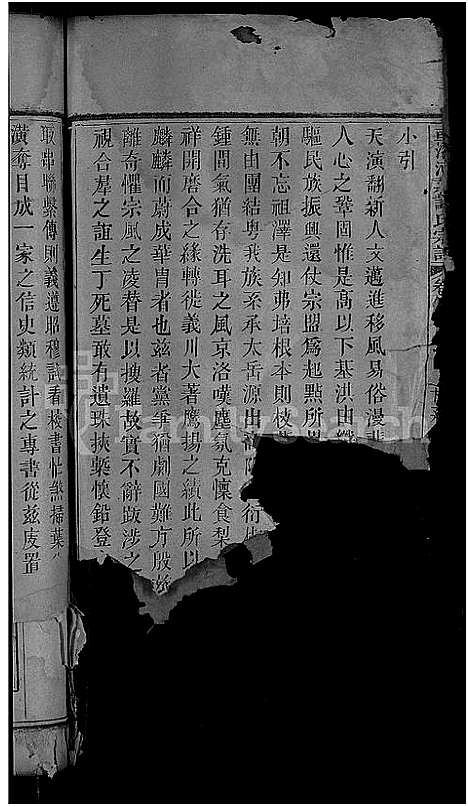 小引
天演翻新人文邁進移風易俗漫
人心之鞏固惟是高以下基洪由纖
驅民族振興還仗宗盟爲起點所
朝不忘祖澤是知弗培根本則枝
無由團結粵我族系承太岳源出
鍾間氣猶存洗耳之風京洛嘆塵氛克懷食梨
祥開磨合之緣轉徙義川大著鷹揚之績此所以
麟麟而蔚成華冑者也玆者黨爭猶劇國難方殷
離奇懼宗風之凌替是以搜羅故實不辭跋涉之
視合羣之誼生丁死墓敢有遺珠挾槧懷鉛登
取牽聯繫傳則義遵昭穆試看校書忙煞掃葉
潢奪目成一家之信史類統計之專書從玆庋置
FamilySearch